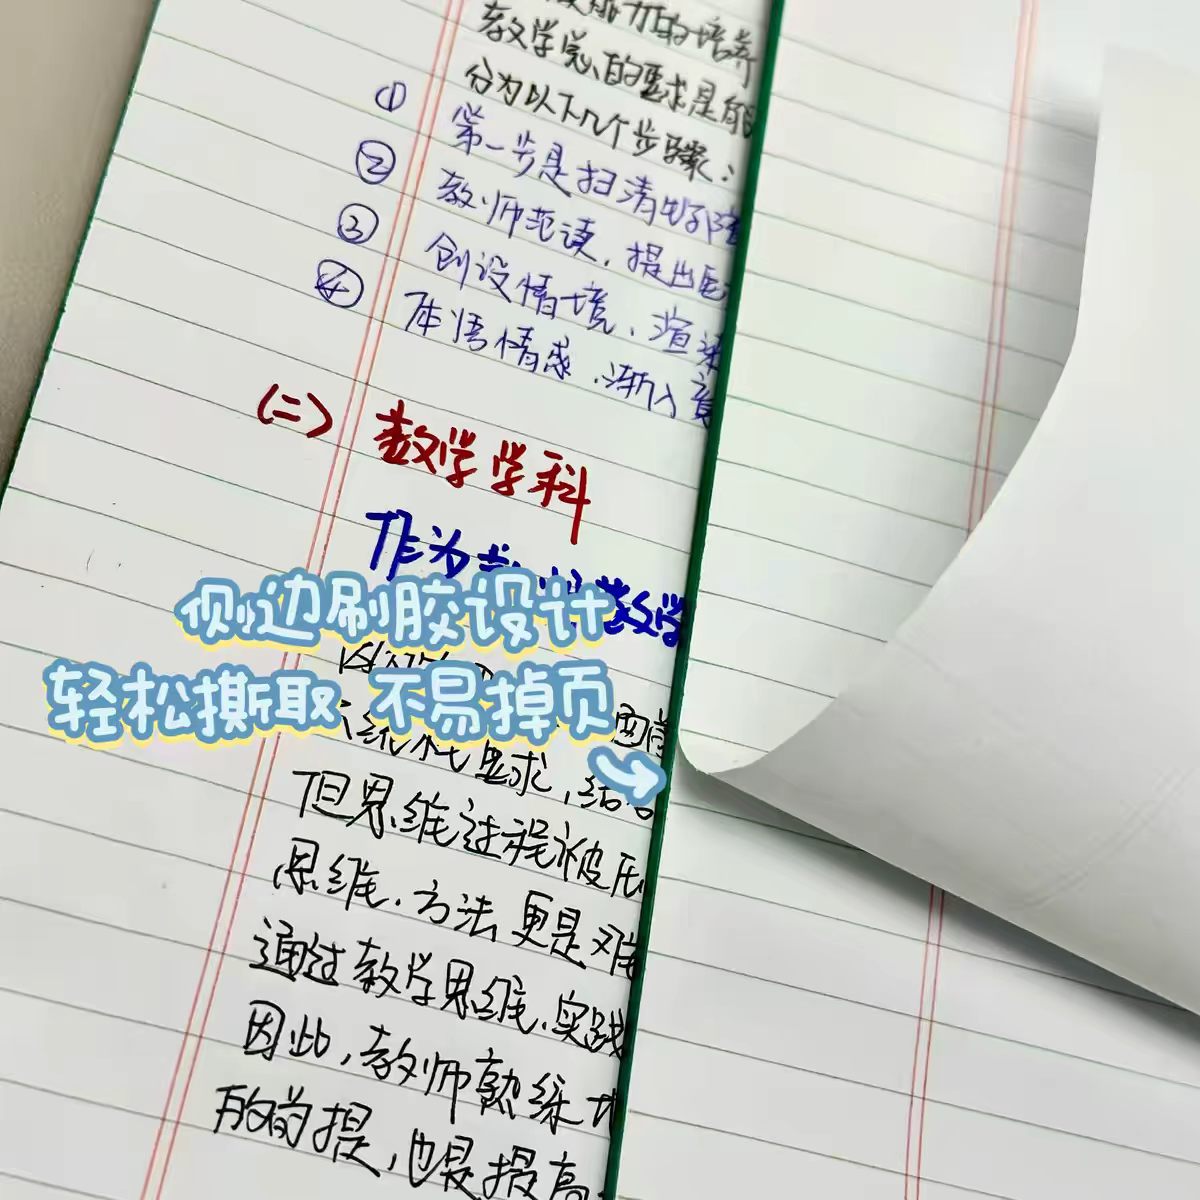 的培养
教学总的要求是能
分为以下几个步骤：
① 第一步是扫清
② 教师范读，提出
③ 创设情境，渲染
④ 体悟情感，渐入
(二) 数学学科
作为
教学
侧边刷胶设计
轻松撕取 不易掉页
要求，结
但思维过程被压
思维，方法更是难
通过教学思维，实践
因此，教师熟练
的前提，也是提高